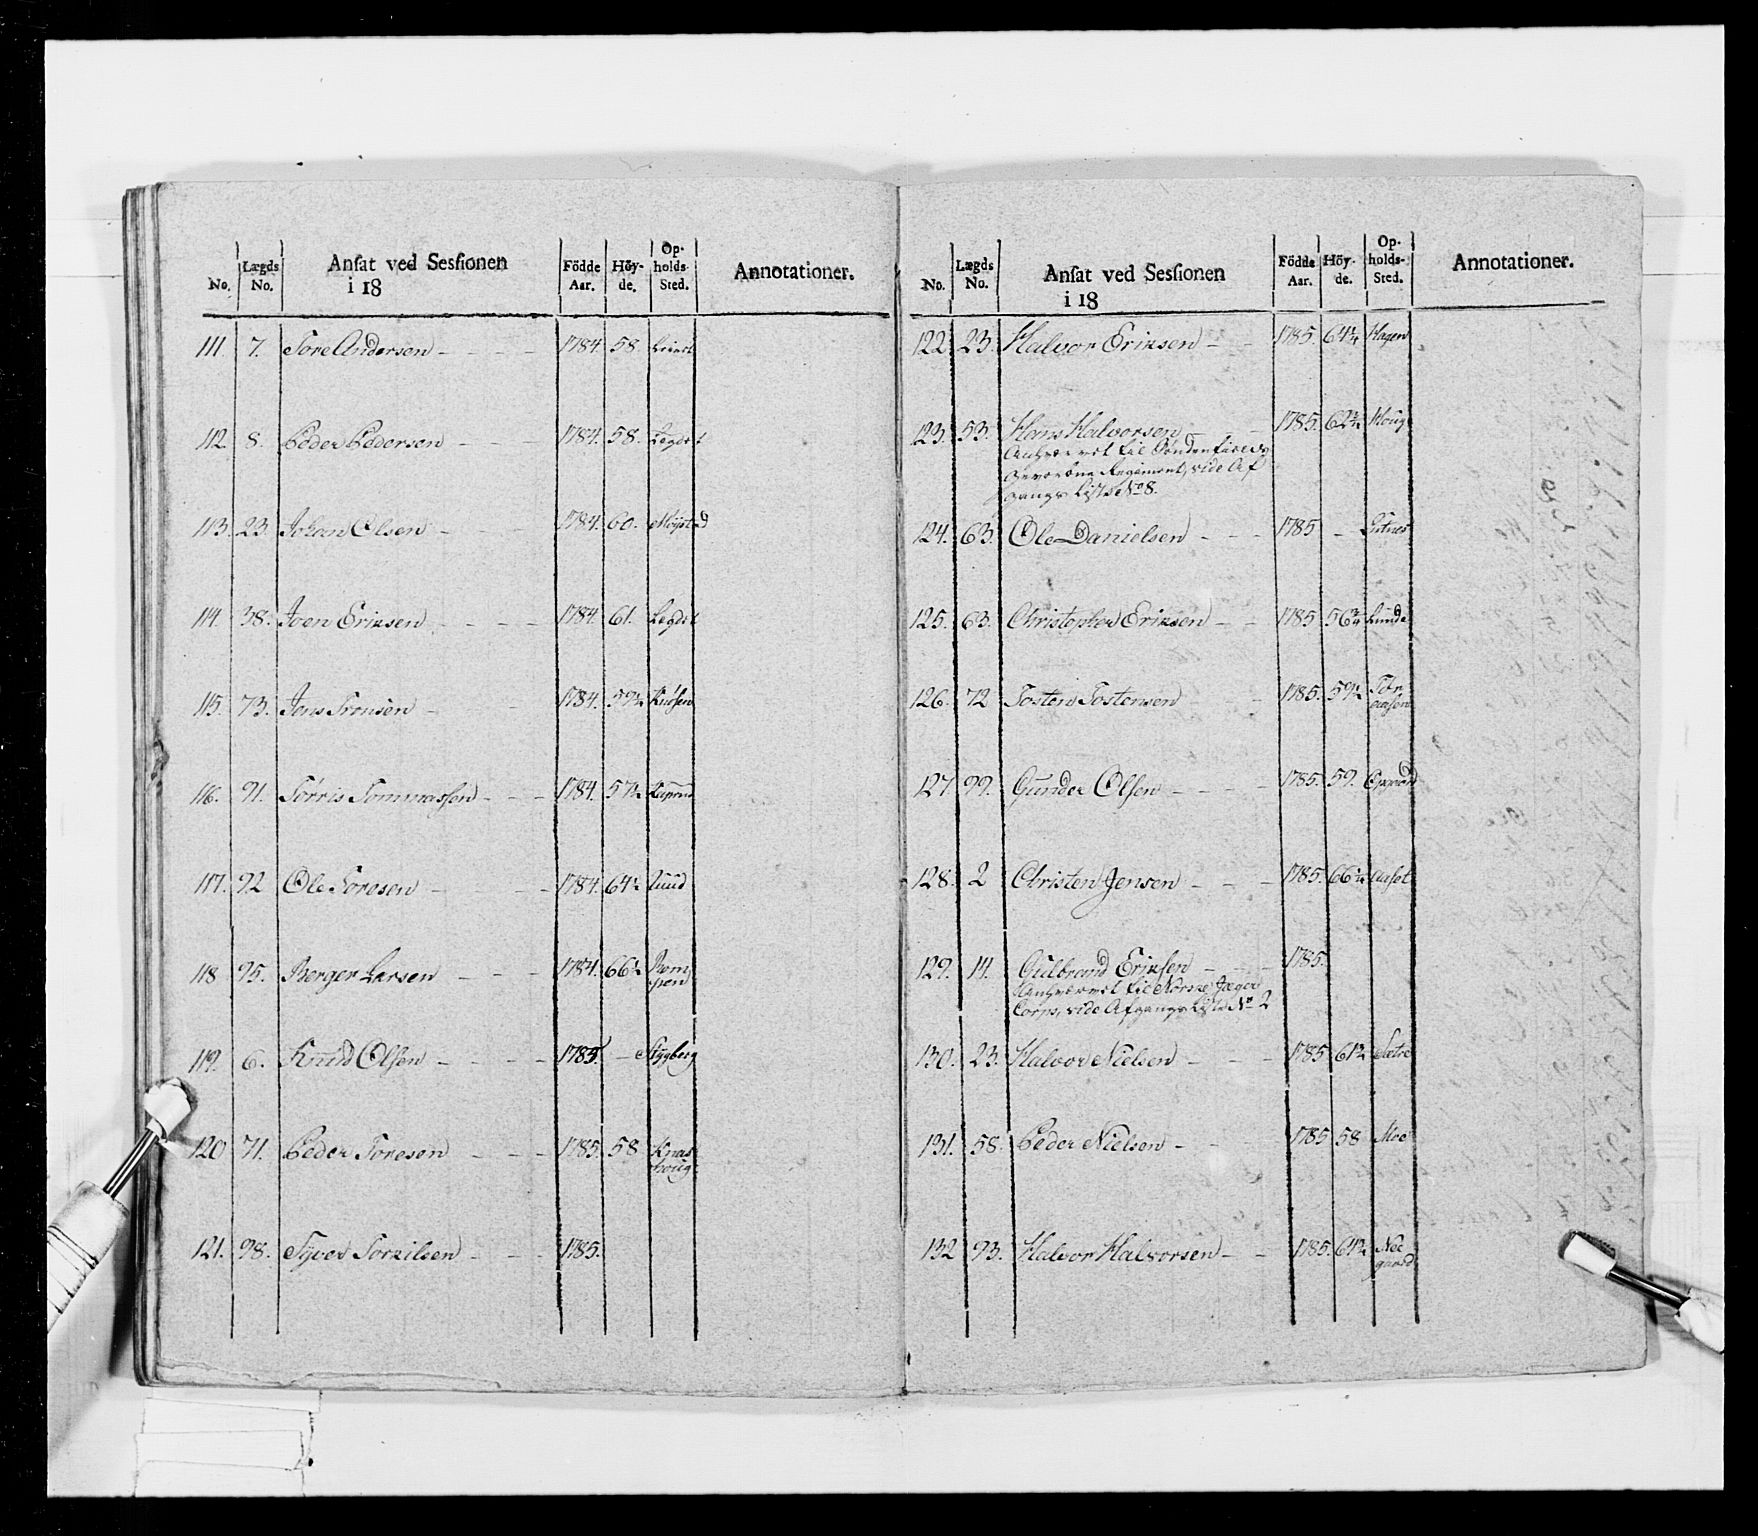 No. Lægds No. Ansat ved Sessionen i 18 Födde Aar. Höy-de. Op-holds-Sted. Annotationer.
111. 7. Tore Andersen - - - - 1784. 58.
112. 8. Peder Pedersen - - - 1784. 58. Legdet
113. 23. Johan Olsen - - - - 1784. 60. Möysted
114. 38. Joen Eriksen - - - - 1784. 61. Legdet
115. 73. Jens Tronsen - - - 1784. 59½
116. 91. Törris Tommassen - - - 1784. 57½
117. 92 Ole Toresen - - - - 1784. 64½ Ruud
118 95. Berger Larsen - - - 1784. 66½
119. 6. Knud Olsen - - - - 1785. - Stygberg
120 71. Peder Toresen - - - 1785. 58 Knashoug
121. 98. Syver Torkilsen - - - 1785.
No. Lægds No. Ansat ved Sessionen i 18 Födde Aar. Höy-de. Op-holds-Sted. Annotationer.
122. 23. Halvor Eriksen - - 1785. 64¼ Hagen
123. 53. Hans Halvorsen - - 1785. 62½ Houg
Anhvervet til Söndenfieldske
Gevorbne Regiment, vide Af
gangs Liste No 8.
124. 63. Ole Danielsen - - - 1785 -
125. 63. Christopher Eriksen - - 1785 56¾ Lunde
126. 72 Tosten Tostensen - - 1785. 59½
127. 99. Gunder Olsen - - - - 1785. 59. Opgaard
128. 2 Christen Jensen - - - 1785. 66½ Aaset
129. 14. Gulbrand Eriksen - - - 1785.
Anhvervet til Norske Jæger
Corps, vide Afgangs Liste No 2
130. 23. Halvor Nielsen - - - 1785 61½ Sætre
131. 58. Peder Nielsen - - 1785 58 Moe
132 93. Halvor Halvorsen - - 1785. 61½ Neegaard